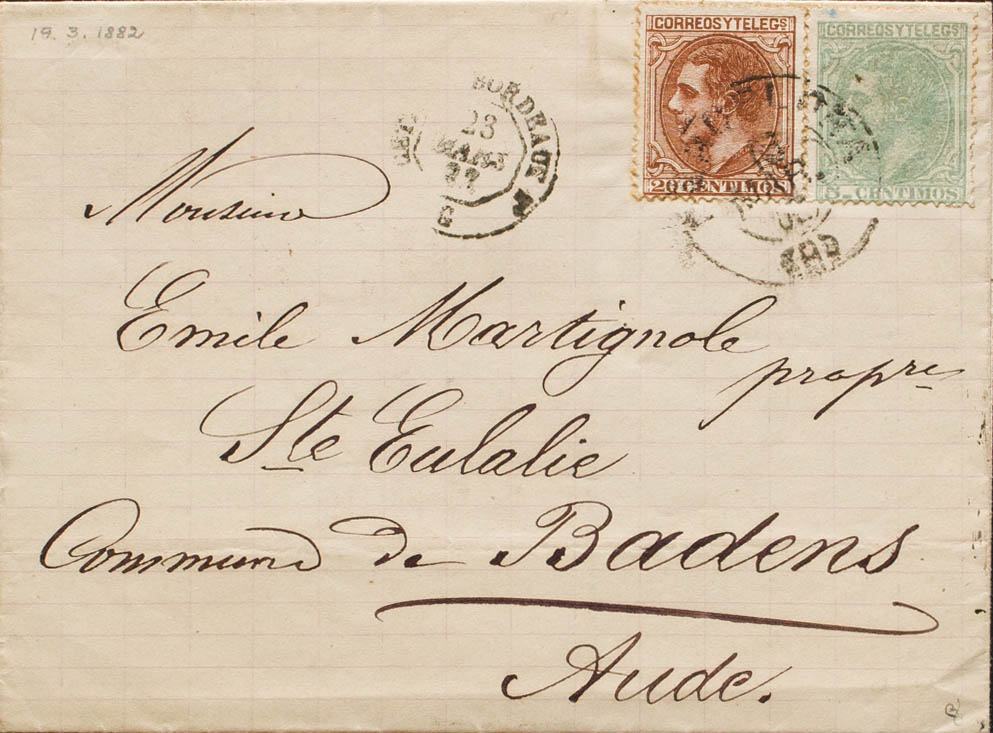 19. 3. 1882
CORREOS Y TELEGS
20 CENTIMOS
CORREOS Y TELEGS
5 CENTIMOS
BORDEAUX
23
MARS
82
Monsieur
Emile Martignole propre
Ste Eulalie
Commune de Badens
Aude.